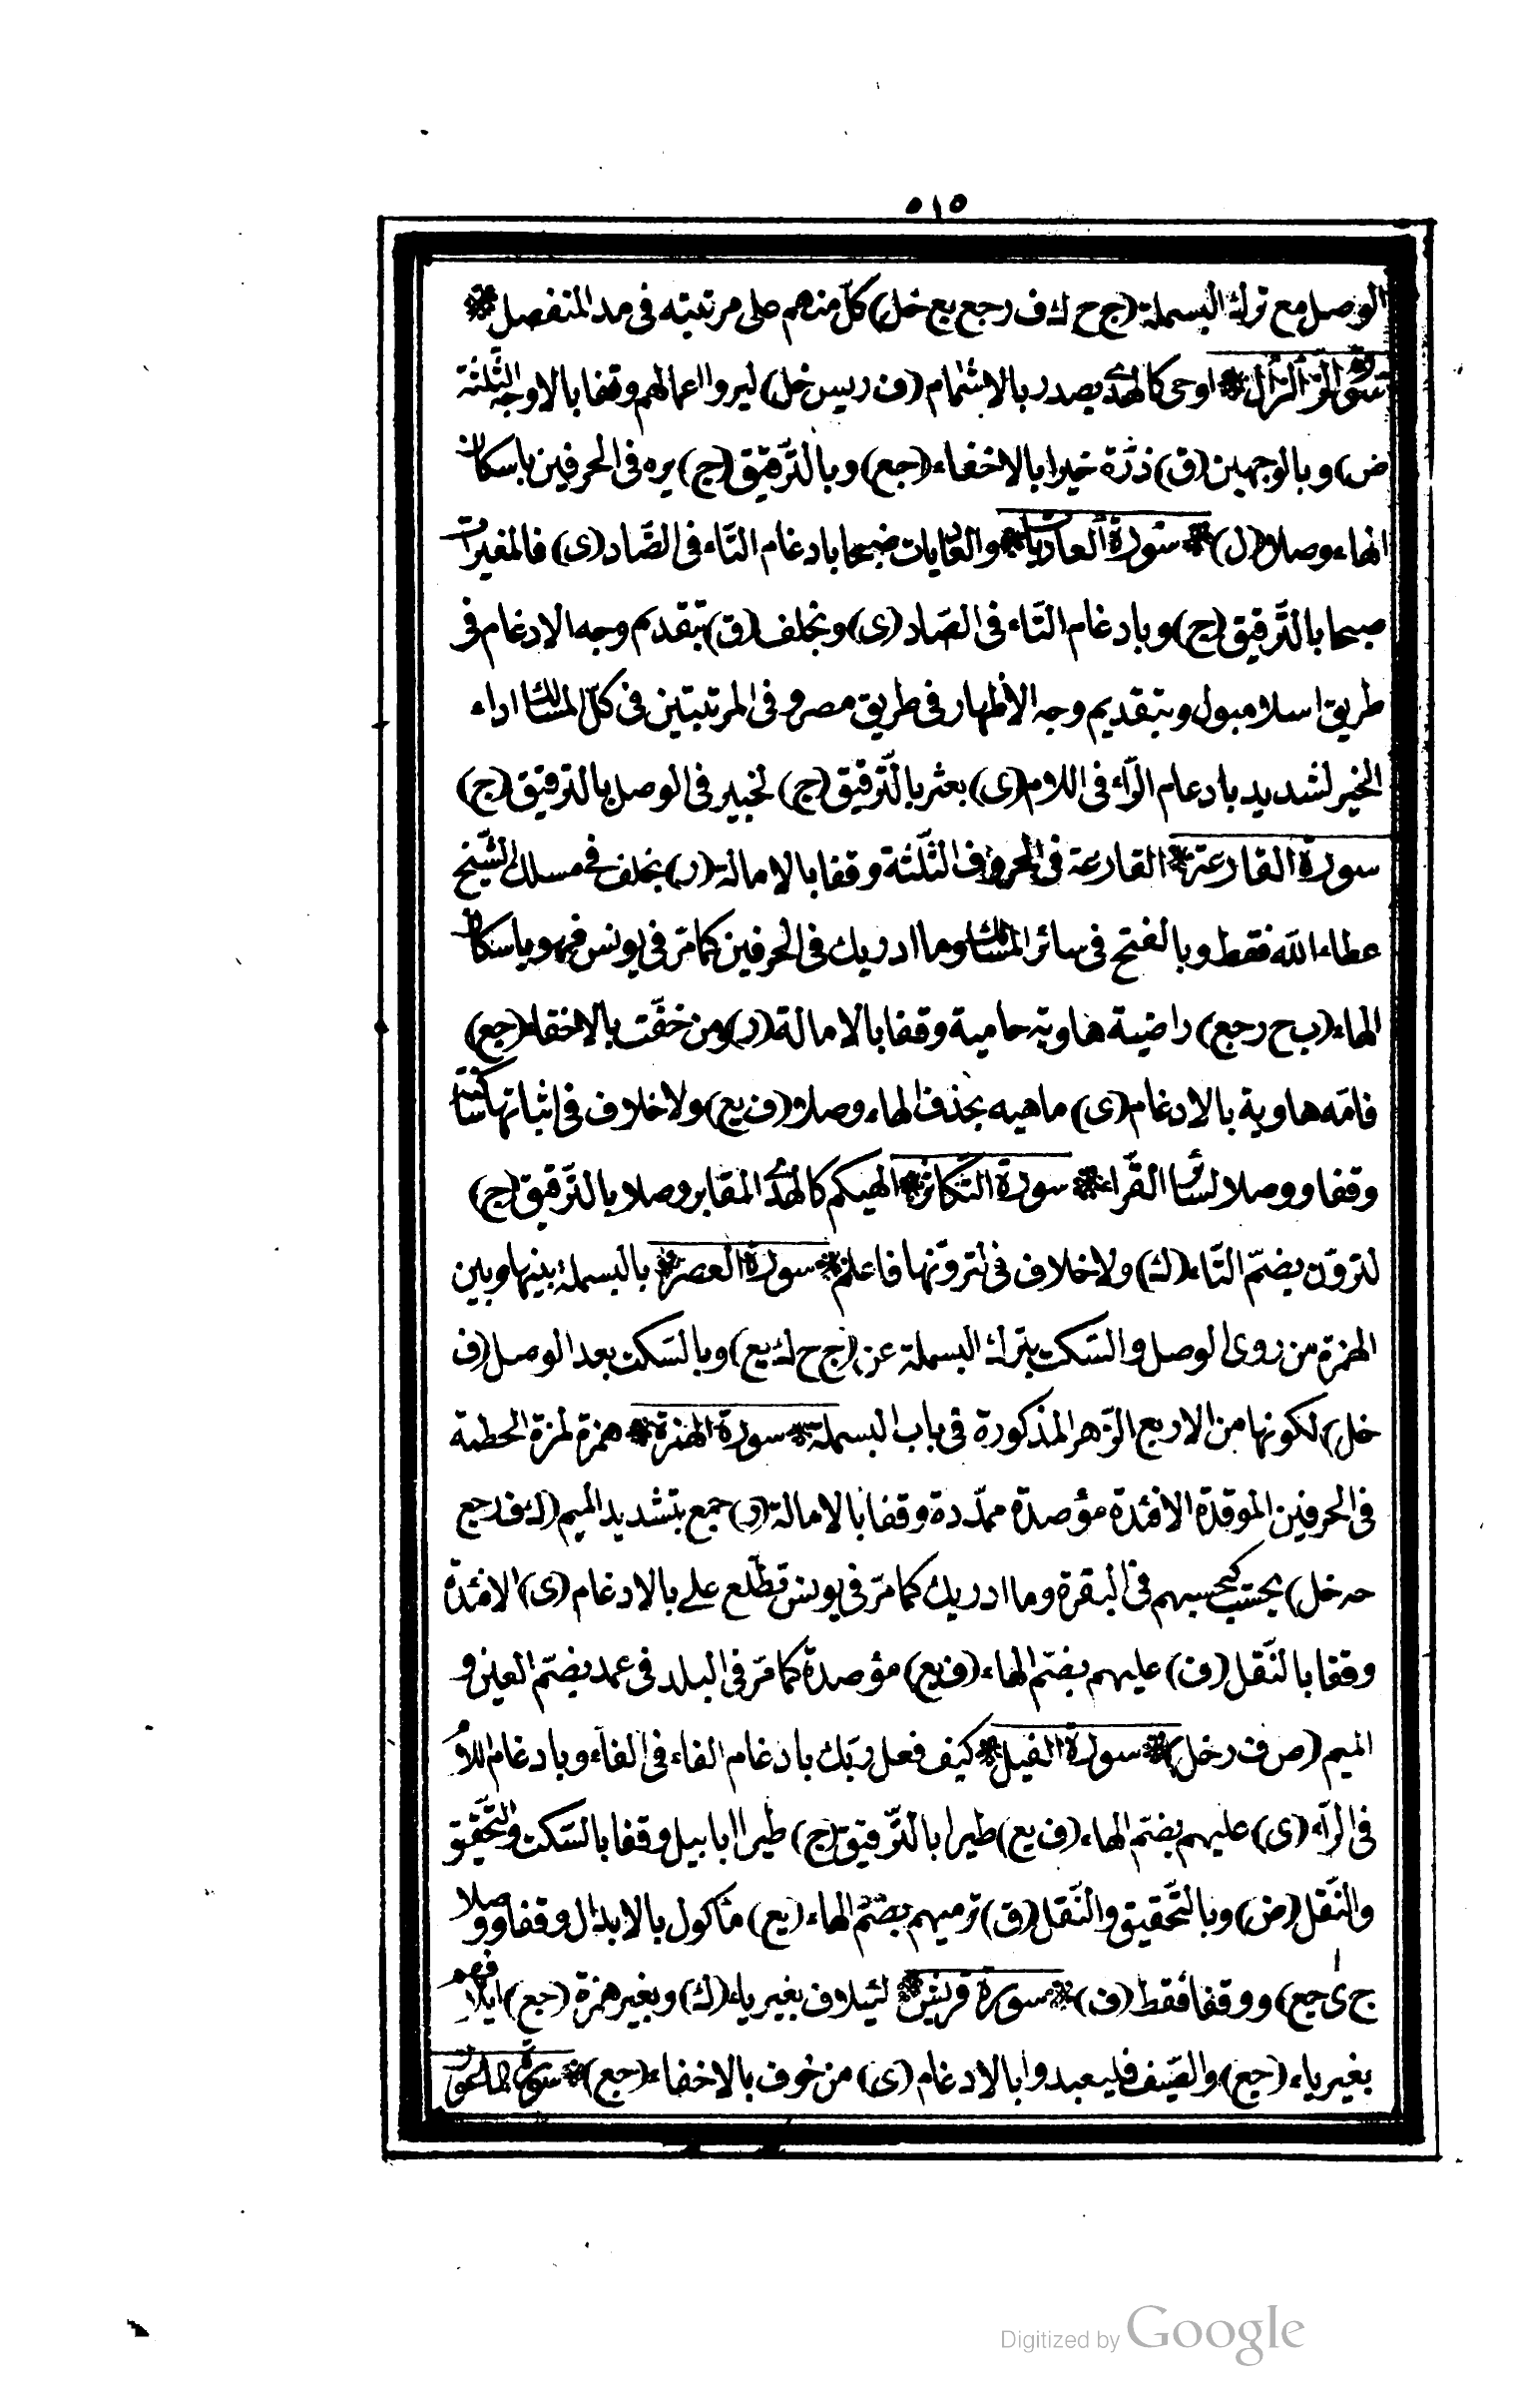 ٥١٥
الوصل مع ترك البسملة (ج ح ك ف رجع يع خل) كلّ منهم على مرتبته فى مد المنفصل
سورة الزلزال اوحى كالهدى يصدر بالاشمام (ف ريس خل) ليروا اعمالهم وقفا بالاوجه الثّلثة
(ض) وبالوجهين (ق) ذرّة خيرا بالاخفاء (جع) وبالتّرقيق (ج) يره فى الحرفين باسكان
الهاء وصلا (ل) سورة العاديات والعاديات ضبحا بادغام التّاء فى الضّاد (ى) فالمغيرات
صبحا بالتّرقيق (ج) وبادغام التّاء فى الصّاد (ى) وبخلف (ق) بتقديم وجه الادغام فى
طريق اسلامبول وبتقديم وجه الاظهار فى طريق مصر وفى المرتبتين فى كلّ المسالك اداء
الخير لشديد بادغام الرّاء فى اللام (ى) بعثر بالتّرقيق (ج) لخبير فى الوصل بالترقيق (ج)
سورة القارعة القارعة فى الحروف الثّلثة وقفا بالامالة (ر) بخلف فى مسلك الشّيخ
عطاء اللّه فقط وبالفتح فى سائر المسالك وما ادريك فى الحرفين كما مرّ فى يونس فهو باسكان
الهاء (ب ح رجع) راضية هاوية حامية وقفا بالامالة (ر) ومن خفّت بالاخفاء (جع)
فامّه هاوية بالادغام (ى) ماهيه بحذف الهاء وصلا (ف يع) ولا خلاف فى اثباتها ساكنة
وقفا ووصلا لسائر القرّاء سورة التكاثر الهيكم كالهدى المقابر وصلا بالتّرقيق (ج)
لتروّن بضمّ التّاء (ك) ولا خلاف فى لتروّنها فاعلم سورة العصر بالبسملة بينها وبين
الهمزة من روى الوصل والسّكت بترك البسملة عن (ج ح ك يع) وبالسّكت بعد الوصل (ف
خل) لكونها من الاربع الزّهر المذكورة فى باب البسملة سورة الهمزة همزة لمزة الحطمة
فى الحرفين الموقدة الافئدة مؤصدة ممدّدة وقفا بالامالة (ر) جمع بتشديد الميم (ك ف رجع
حه خل) يحسب كيحسبهم فى البقرة وما ادريك كما مرّ فى يونس تطّلع على بالادغام (ى) الافئدة
وقفا بالنّقل (ف) عليهم بضمّ الهاء (ف يع) مؤصدة كما مرّ فى البلد فى عمد بضمّ العين و
الميم (ص ف رخل) سورة الفيل كيف فعل ربّك بادغام الفاء فى الفاء وبادغام اللام
فى الرّاء (ى) عليهم بضمّ الهاء (ف يع) طيرا بالتّرقيق (ج) طيرا ابابيل وقفا بالسّكت والتّحقيق
والنّقل (ض) وبالتّحقيق والنّقل (ق) ترميهم بضمّ الهاء (يع) مأكول بالابدال وقفا ووصلا
(ج ى جع) ووقفا فقط (ف) سورة قريش لئيلاف بغير ياء (ك) وبغير همزة (جع) ايلافهم
بغير ياء (جع) والصّيف فليعبدوا بالادغام (ى) من خوف بالاخفاء (جع) سورة الماعون
Digitized by Google